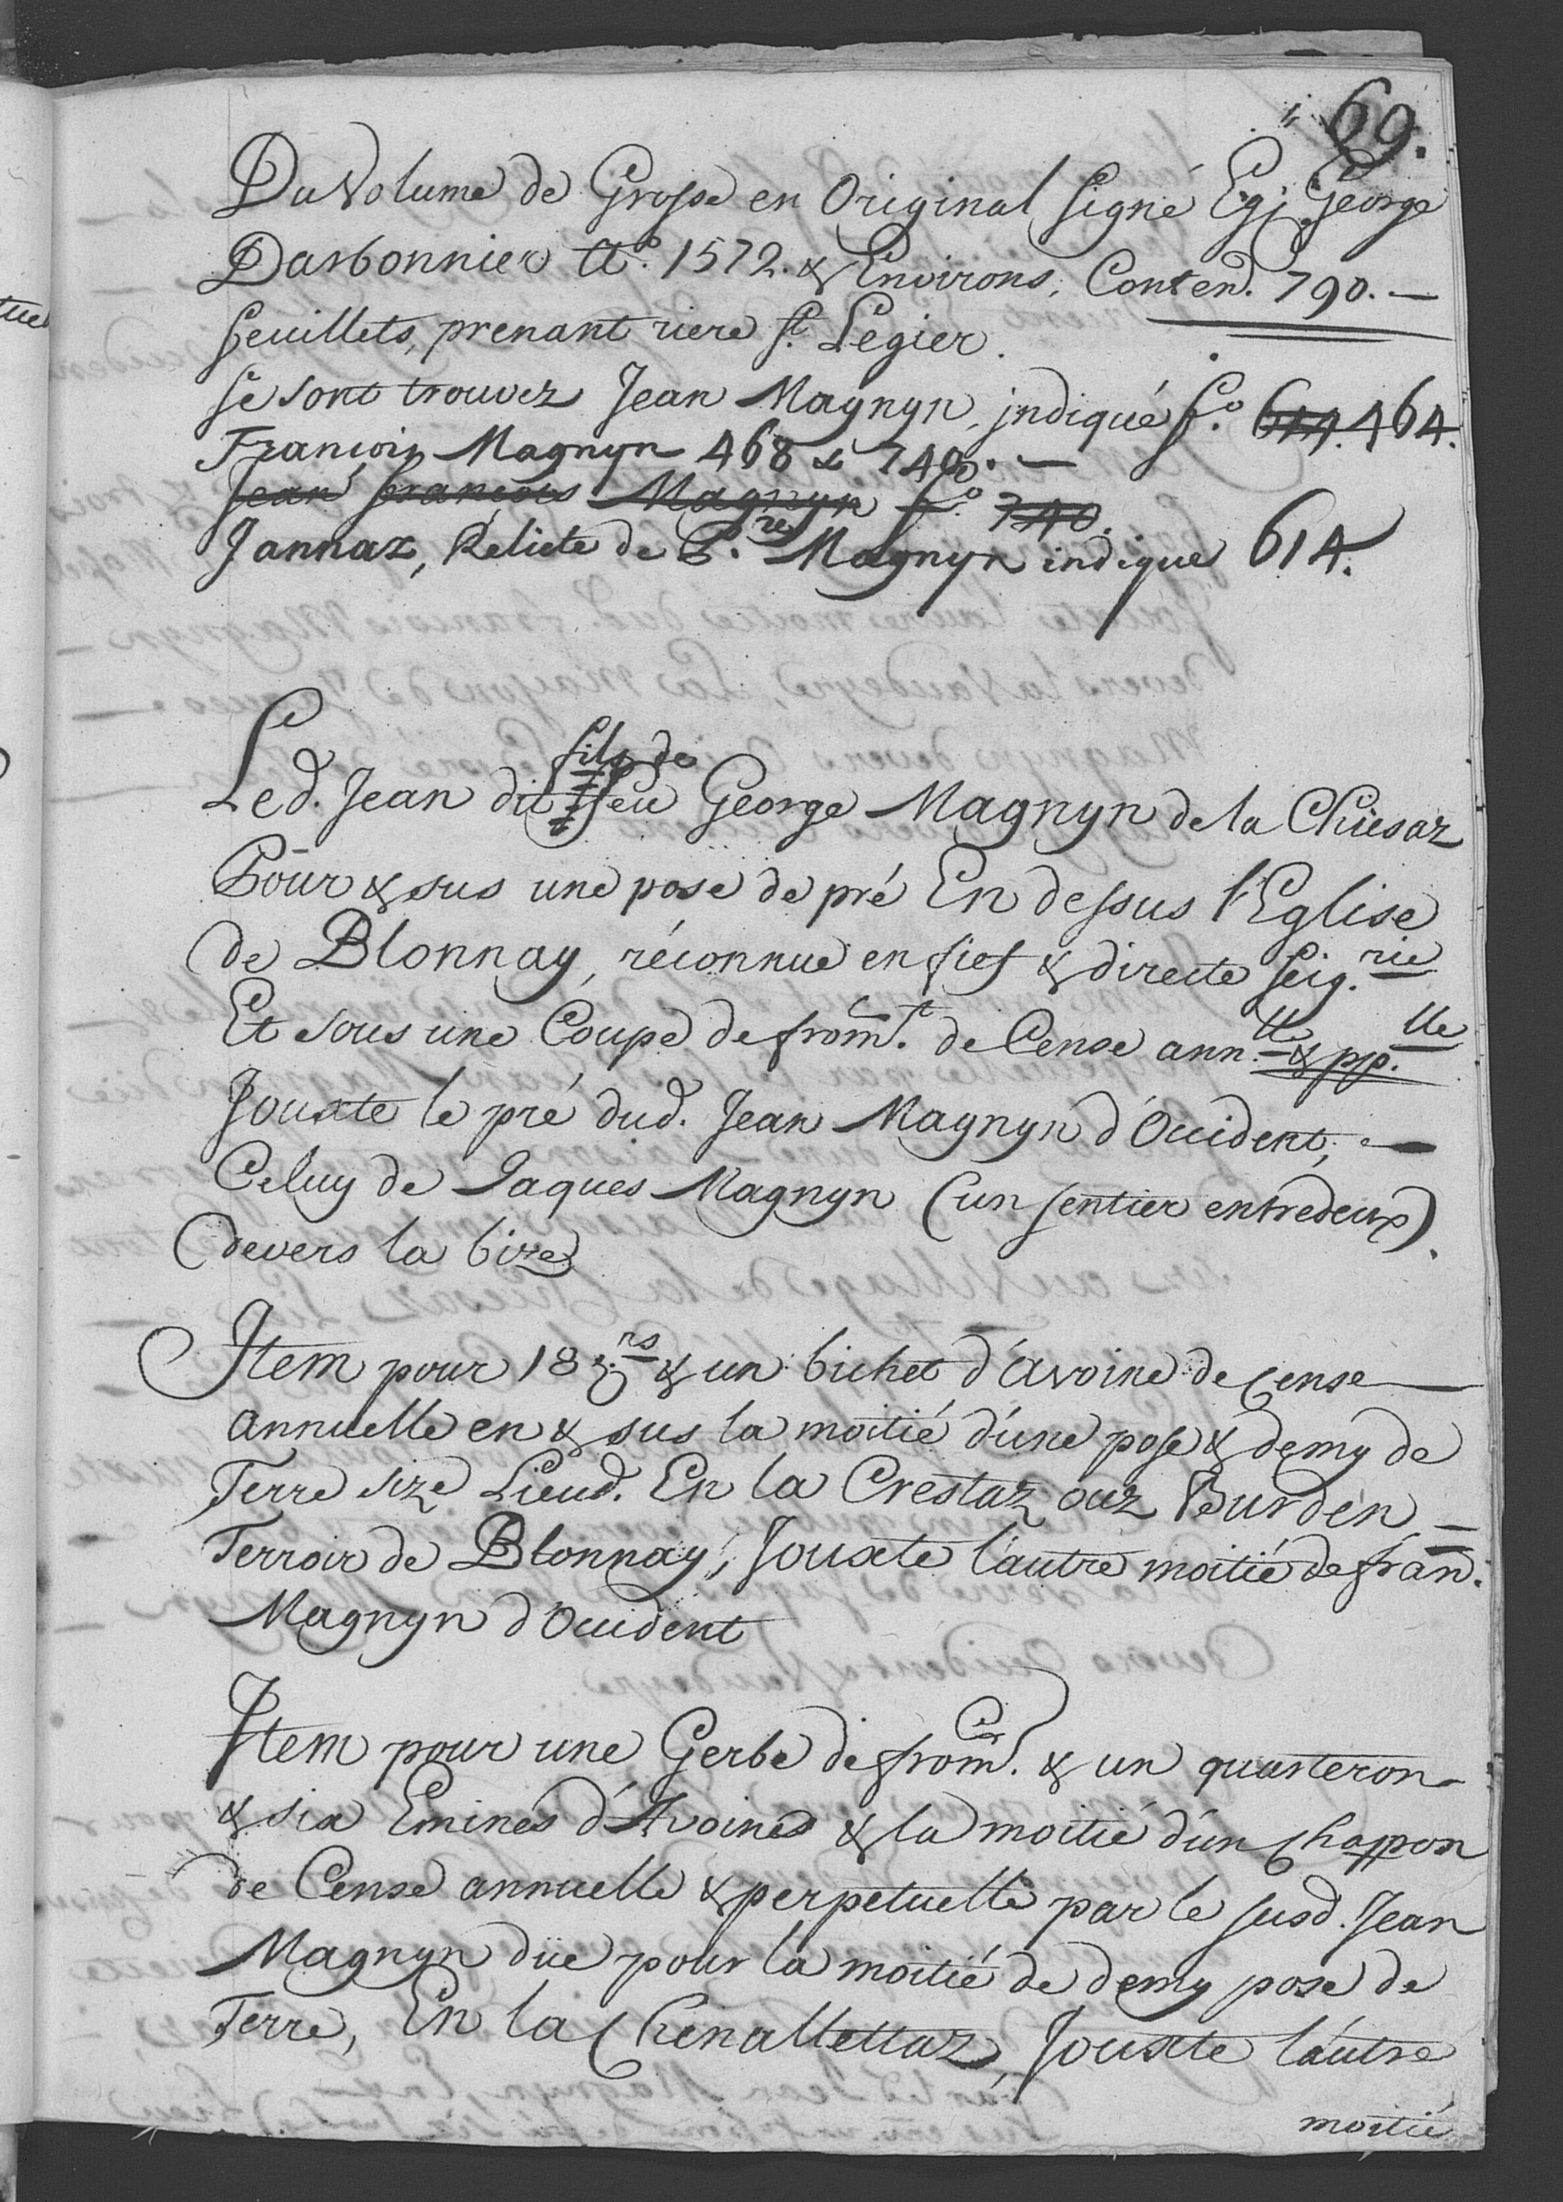 69.
Du Volume de Grosse en Original signé Eg: George
Darbonnier A.º 1572. & Environs, Conten.d 790. —
feuillets, prenant riere S.t Legier.
se sont trouvez Jean Magnyn, indiqué f.º 614. 464.
François Magnyn 468 & 740. —
Jean françois Magnyn f.º 740.
Jannaz, Relicte de P.re Magnyn indique 614.
Led. Jean du fils de feu George Magnyn de la Chiesaz
Pour & sus une pose de pré En dessus l'Eglise
de Blonnay, réconnue en fief & directe seig.rie
Et sous une Coupe de from.t de Cense ann.lle & pp.lle
Jouxte le pré dud. Jean Magnyn d'Occident, —
Celuy de Jaques Magnyn (un sentier entredeux)
devers la bize.
Item pour 18 d.rs & un bichet d'avoine de Cense —
annuelle en & sus la moitié d'une pose & demy de
Terre size Lieud. En la Crestaz ouz Burden —
Terroir de Blonnay, Jouxte l'autre moitié de fran.
Magnyn d'Occident
Item pour une Gerbe de from. & un quarteron
& six Emines d'Avoine & la moitié d'un Chappon
de Cense annuelle & perpetuelle par le susd. Jean
Magnyn düe pour la moitié de demy pose de
Terre, En la Chenallettaz, Jouxte l'autre
moitié